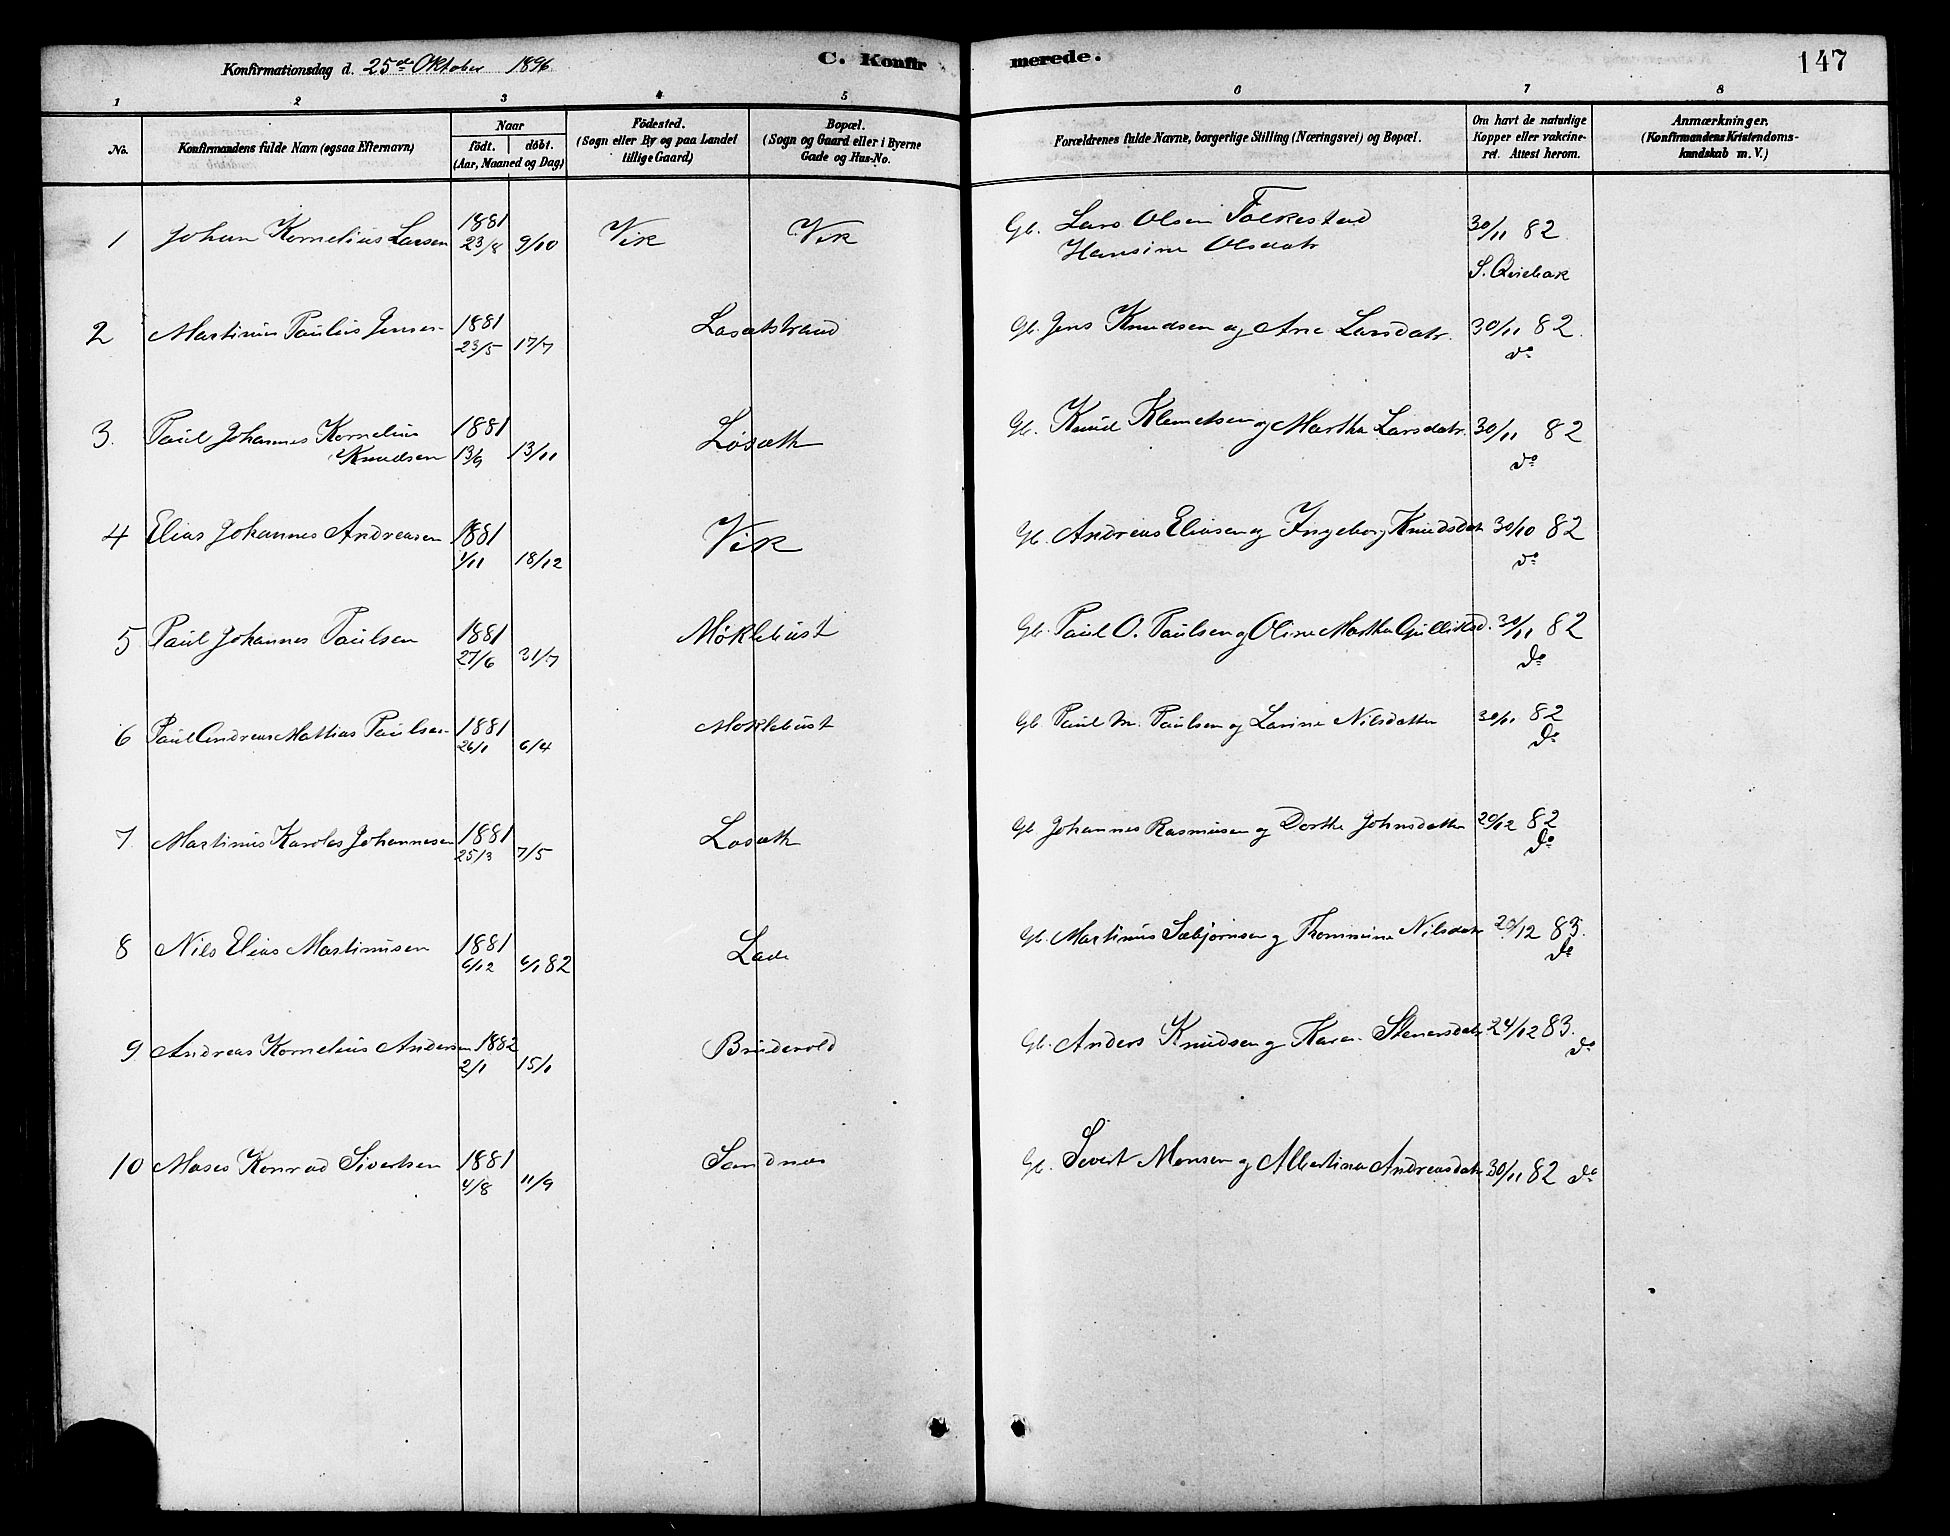 Konfirmationsdag d. 25de Oktober 1896
C. Konfirmerede.
147
1 2 3 4 5 6 7 8
No.
Konfirmandens fulde Navn (ogsaa Efternavn)
Naar
födt. döbt.
(Aar, Maaned og Dag)
Födested.
(Sogn eller By og paa Landet
tillige Gaard)
Bopæl.
(Sogn og Gaard eller i Byerne
Gade og Hus-No.
Forældrenes fulde Navne, borgerlige Stilling (Næringsvei) og Bopæl.
Om havt de naturlige
Kopper eller vakcine-
ret. Attest herom.
Anmærkninger,
(Konfirmandens Kristendoms-
kundskab m. V.)
1 Johan Kornelius Larsen 1881 23/8 9/10 Vik Vik Gb. Lars Olsen Folkestad
Hansine Olsdatr 30/11 82
S. Qvichak
2 Martinus Paulus Jensen 1881 23/5 17/7 Løsætstrand Gb. Jens Knudsen og Ane Larsdatr. 30/11 82.
do
3. Paul Johannes Kornelius
Knudsen 1881 13/9 13/11 Løsæth Gb. Knud Klemetsen og Martha Larsdatr. 30/11 82
do
4 Elias Johannes Andreasen 1881 1/11 18/12 Vik Gb. Andreas Eliasen og Ingeborg Knudsdatr 30/10 82
do
5 Paul Johannes Paulsen 1881 27/6 31/7 Møklebust Gb. Paul O. Paulsen og Oline Martha Gulliksd. 30/11 82
do
6 Paul Andreas Mathias Paulsen 1881 26/1 6/4 Moklebust Gb. Paul M. Paulsen og Larine Nilsdatter 30/11 82
do
7. Martinus Karolus Johannesen 1881 25/3 7/5 Løsæth Gb. Johannes Rasmusen og Dorthe Johnsdatter 20/12 82
do
8 Nils Elias Martinusen 1881 6/12 6/1 82 Lade Gb. Martinus Sæbjørnsen og Thommine Nilsdatr 20/12 83.
do
9 Andreas Kornelius Andersen 1882 2/1 15/1 Brudevold Gb. Anders Knudsen og Karen Stenersdatr 24/12 83.
do
10 Moses Konrad Sivertsen 1881 4/8 11/9 Sandnæs Gb. Sivert Monsen og Albertine Andreasdatr 30/11 82 do